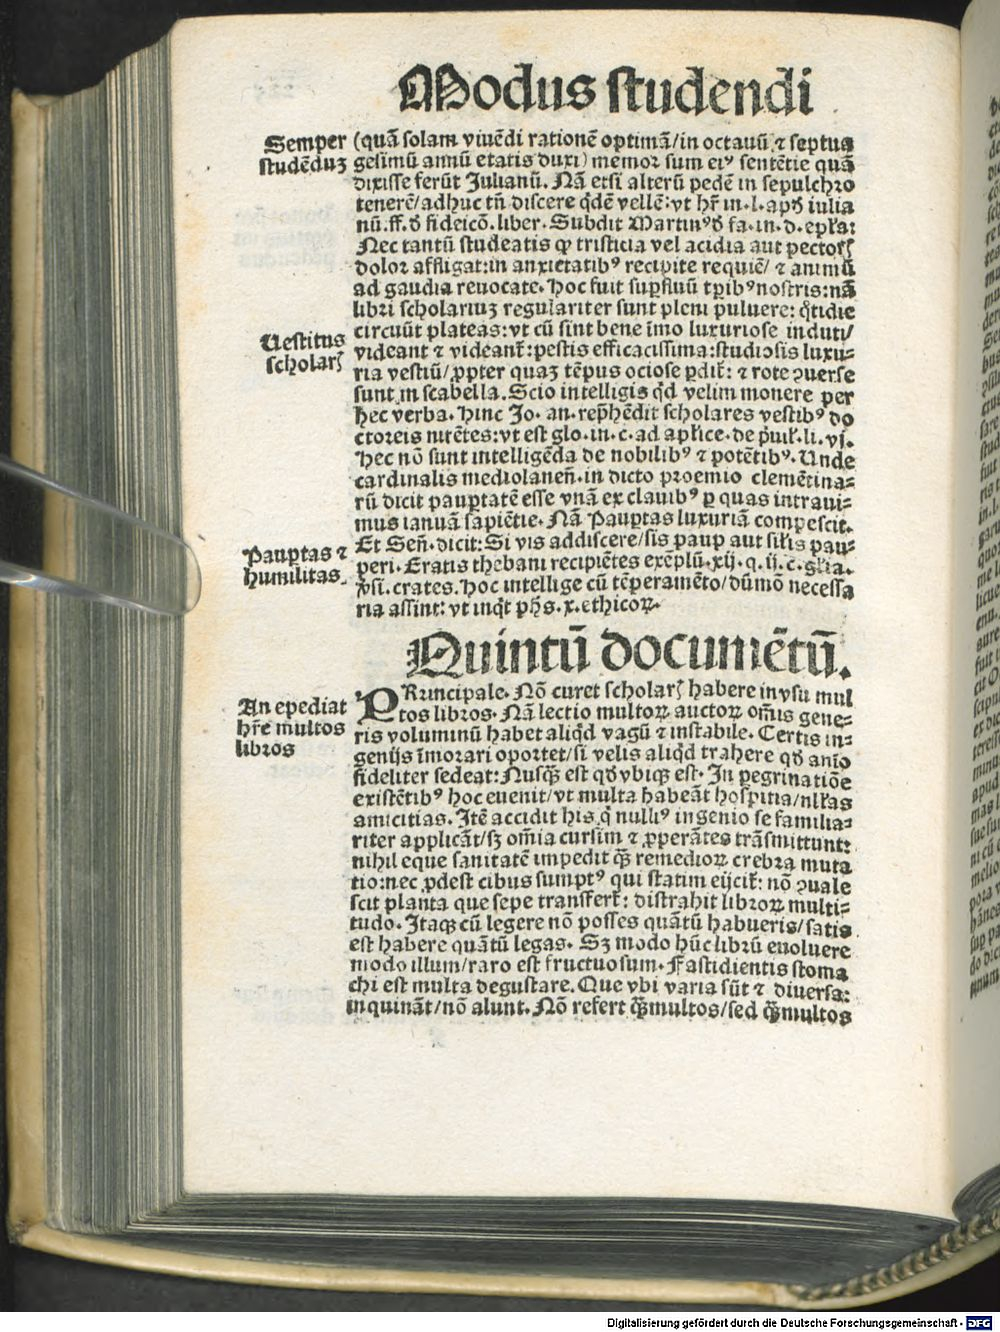 Modus studendi
Semper
studēduʒ
(quā solam viuēdi rationē optimā/in octauū ⁊ septua
gesimū annū etatis duxi) memor sum eiꝰ sentētie quā
dixisse ferūt Julianū. Nā etsi alterū pedē in sepulchro
tenerē/adhuc tn̄ discere q̄dē vellē: vt hr̄ in .l. apđ iulia
nū. ff. đ fideicō. liber. Subdit Martinꝰ đ fa. in. d. epl̄a:
Nec tantū studeatis ꝙ tristicia vel acidia aut pectorꝭ
dolor affligat: in anxietatibꝰ recipite requiē/ ⁊ animū
ad gaudia reuocate. Hoc fuit suꝑfluū tꝑibꝰ nostris: nā
libri scholariuʒ regulariter sunt pleni puluere: q̄tidie
Uestitus
scholarꝭ
circuūt plateas: vt cū sint bene īmo luxuriose induti/
videant ⁊ videant̄: pestis efficacissima: studiosis luxu⸗
ria vestiū/ ꝓpter quaʒ tēpus ociose ꝑdit̄: ⁊ rote ꝯuerse
sunt in scabella. Scio intelligis qđ velim monere per
hec verba. Hinc Jo. an. rep̄hēdit scholares vestibꝰ do
ctoreis nitētes: vt est glo. in. c. ad apl̄ice. de p̄uil̄. li. vj.
Hec nō sunt intelligēda de nobilibꝰ ⁊ potētibꝰ. Unde
cardinalis mediolaneñ. in dicto proemio clemētina⸗
rū dicit pauꝑtatē esse vnā ex clauibꝰ ꝑ quas intraui⸗
mus ianuā sapiētie. Nā Pauꝑtas luxuriā compescit.
Pauꝑtas ⁊
humilitas.
Et Señ. dicit: Si vis addiscere/sis pauꝑ aut sil̄is pau⸗
peri. Eratis thebani recipiētes exēplū. xij. q. ij. c. gl̄ia.
ꝓsi. crates. Hoc intellige cū tēperamēto/dūmō necessa
ria assint: vt inq̄t ph̄s. x. ethicoꝝ.
Quintū documētū.
An expediat
hr̄e multos
libros
PRincipale. Nō curet scholarꝭ habere in vsu mul
tos libros. Nā lectio multoꝝ auctoꝝ om̄is gene⸗
ris voluminū habet aliqđ vagū ⁊ instabile. Certis in⸗
genijs īmorari oportet/si velis aliqđ trahere qđ aīo
fideliter sedeat: Nusqᷓ est qđ vbiqꝫ est. In ꝑegrinatiōe
existētibꝰ hoc euenit/vt multa habeāt hospitia/nll̄as
amicitias. Itē accidit his q̇ nulliꝰ ingenio se familia⸗
riter applicāt/sʒ om̄ia cursim ⁊ ꝓperātes trāsmittunt:
nihil eque sanitatē impedit qᷓ remedioꝝ crebra muta
tio: nec ꝓdest cibus sumptꝰ qui statim eijcit̄: nō ꝯuale
scit planta que sepe transfert̄: distrahit libroꝝ multi⸗
tudo. Itaqꝫ cū legere nō posses quātū habueris/satis
est habere quātū legas. Sʒ modo hūc librū euoluere
modo illum/raro est fructuosum. Fastidientis stoma
chi est multa degustare. Que vbi varia sūt ⁊ diuersa:
inquināt/nō alunt. Nō refert qᷓmultos/sed qᷓmultos
Digitalisierung gefördert durch die Deutsche Forschungsgemeinschaft - DFG